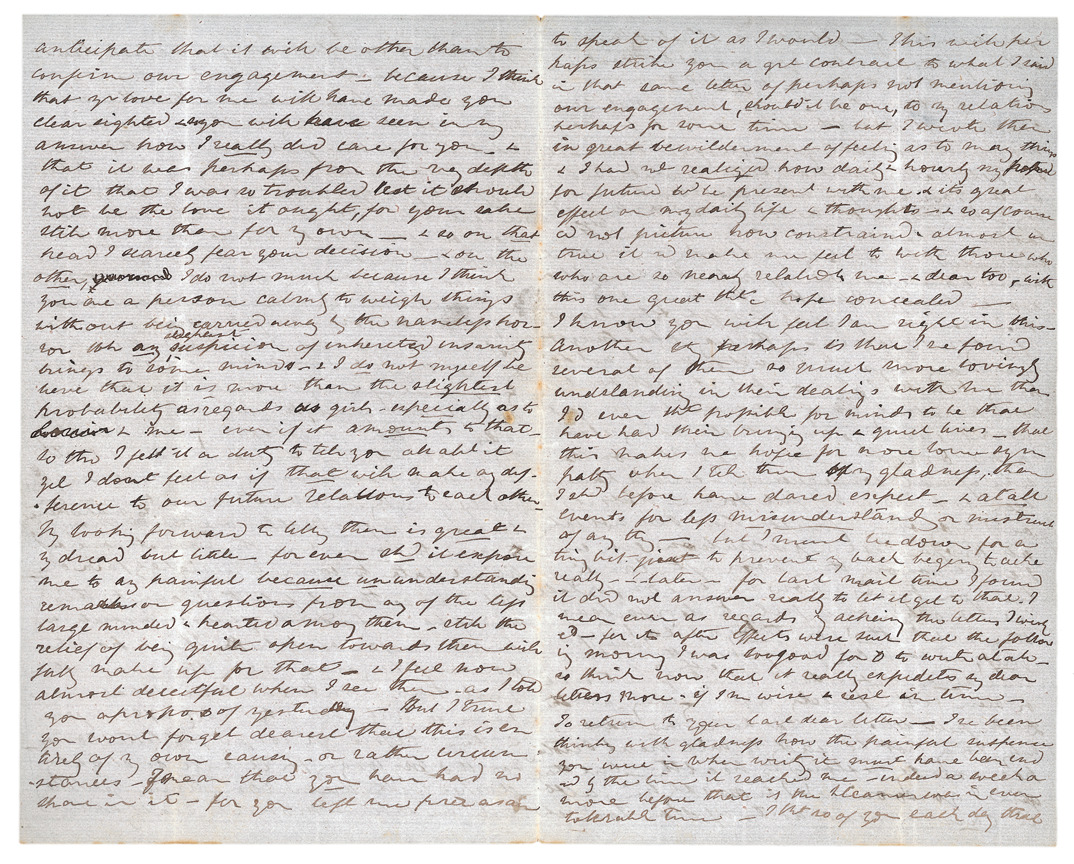 anticipate that it will be other than to
confirm our engagement - because I think
that yr love for me will have made you
clear sighted & you will have seen in my
answer how I really did care for you - &
that it was perhaps from the very depth
of it that I was so troubled lest it should
not be the love it ought, for your sake
still more than for my own - & so on that
head I scarcely fear your decision - & on the
other I do not much because I think
you are a person calmly to weigh things
without being carried away by the nameless hor-
ror wh any suspicion of inherited insanity
brings to some minds - & I do not myself be
lieve that it is more than the slightest
probability as regards us girls - especially as to
& me - even if it amounts to that -
so tho' I felt it a duty to tell you all abt it
yet I dont feel as if that will make any dif-
-ference to our future relations to each other -
My looking forward to tell them is great &
my dread but little - for even shd it expose
me to any painful because un understanding
remarks or questions from any of the less
large minded & hearted among them - still the
relief of being quite open towards them will
fully make up for that - & I feel now
almost deceitful when I see them - as I told
you apropos of yesterday - But I trust
you wont forget dearest that this is en
tirely of my own causing - or rather circum
-stances - I mean that you have had no
share in it - for you left me free as air
to speak of it as I would - This will per
haps strike you a gt contrast to what I said
in that same letter of perhaps not mentioning
our engagement, should it be one, to my relations
perhaps for some time - but I wrote then
in great bewilderment of feeling as to many things
& I had not realized how daily & hourly my
for future wd be present with me & its great
effect on my daily life & thoughts - & so of course
cd not picture how constrained & almost un
true it wd make me feel to with those who
who are so nearly related to me - & dear too, with
this one great hope concealed -
I know you will feel I am right in this -
Another perhaps is that I've found
several of them so much more lovingly
understanding in their dealings with me than
I'd ever thot possible for minds to be that
have had their bringing up & quiet lives - that
this makes me hope for more home sym
pathy when I tell them of my gladness, than
I shd before have dared expect - & at all
events for less misunderstanding or mistrust
of any thing - but I must lie down for a
tiny bit just to prevent my back begining to ache
really - & later - for last mail time I found
it did not answer really to let it get to that. I
mean even as regards my achieving the letters I want
ed - for its after effects were such that the follow
ing morning I was too good for 0 to write at all -
so think now that it really expedites my dear
letters more - if I'm wise & rest in time -
To return to your last dear letter - I've been
thinking with gladness how the painful suspense
you were in when writing it must have been end
ed by the time it reached me - indeed a week or
more before that is the steamer was in even
tolerable time - I tht so of you each day that